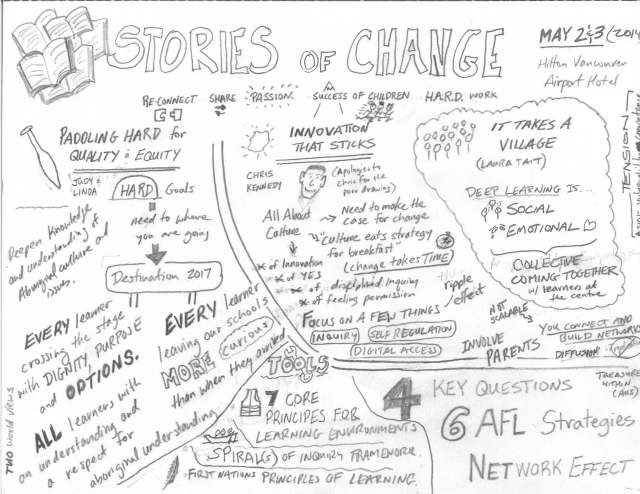 STORIES OF CHANGE
MAY 2 & 3 (2014)
Hilton Vancouver
Airport Hotel
RE-CONNECT SHARE PASSION SUCCESS OF CHILDREN H.A.R.D. WORK
PADDLING HARD for
QUALITY & EQUITY
JUDY &
LINDA
HARD Goals
need to where
you are going
Destination 2017
Deepen knowledge
and understanding of
Aboriginal culture and
issues.
EVERY learner
crossing the stage
with DIGNITY, PURPOSE
and OPTIONS.
ALL learners with
an understanding and
a respect for
aboriginal understanding
TWO World Views
EVERY learner
leaving our schools
MORE curious
than when they arrived
INNOVATION
THAT STICKS
CHRIS
KENNEDY
(Apologies to
chris for the
poor drawing)
All About
Culture
Need to make the
case for change
"culture eats strategy
for breakfast"
(change takes TIME
* of Innovation
* of YES
* of disciplined inquiry
* of feeling permission
ripple
effect
FOCUS ON A FEW THINGS
INQUIRY SELF REGULATION
DIGITAL ACCESS
IT TAKES A
VILLAGE
(LAURA TAIT)
DEEP LEARNING IS...
SOCIAL
EMOTIONAL
COLLECTIVE
COMING TOGETHER
w/ learners at
the centre
TENSION
NOT
SCALABLE
INVOLVE
PARENTS
YOU CONNECT AND
BUILD NETWORKS
DIFFUSION
TOOLS
7 CORE
PRINCIPES FOR
LEARNING ENVIRONMENTS
SPIRALS OF INQUIRY FRAMEWORK
FIRST NATIONS PRINCIPLES OF LEARNING.
4 KEY QUESTIONS
TREASURE
WITHIN
6 AFL Strategies
NETWORK EFFECT